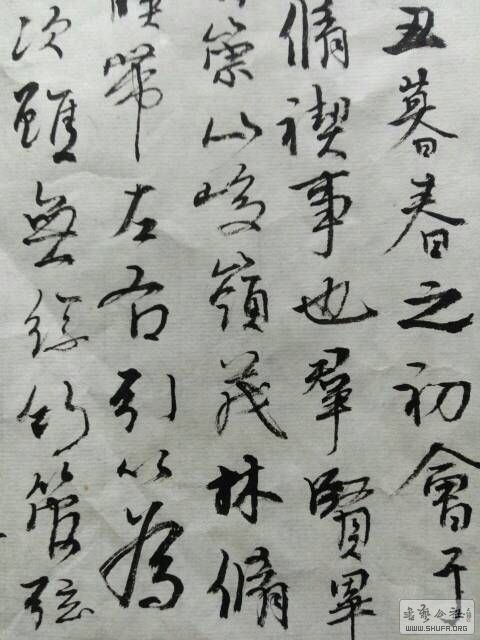 丑暮春之初會于
脩禊事也羣賢畢
崇山峻嶺茂林脩
映帶左右引以為
次雖無絲竹管弦
書藝公社
WWW.SHUFA.ORG